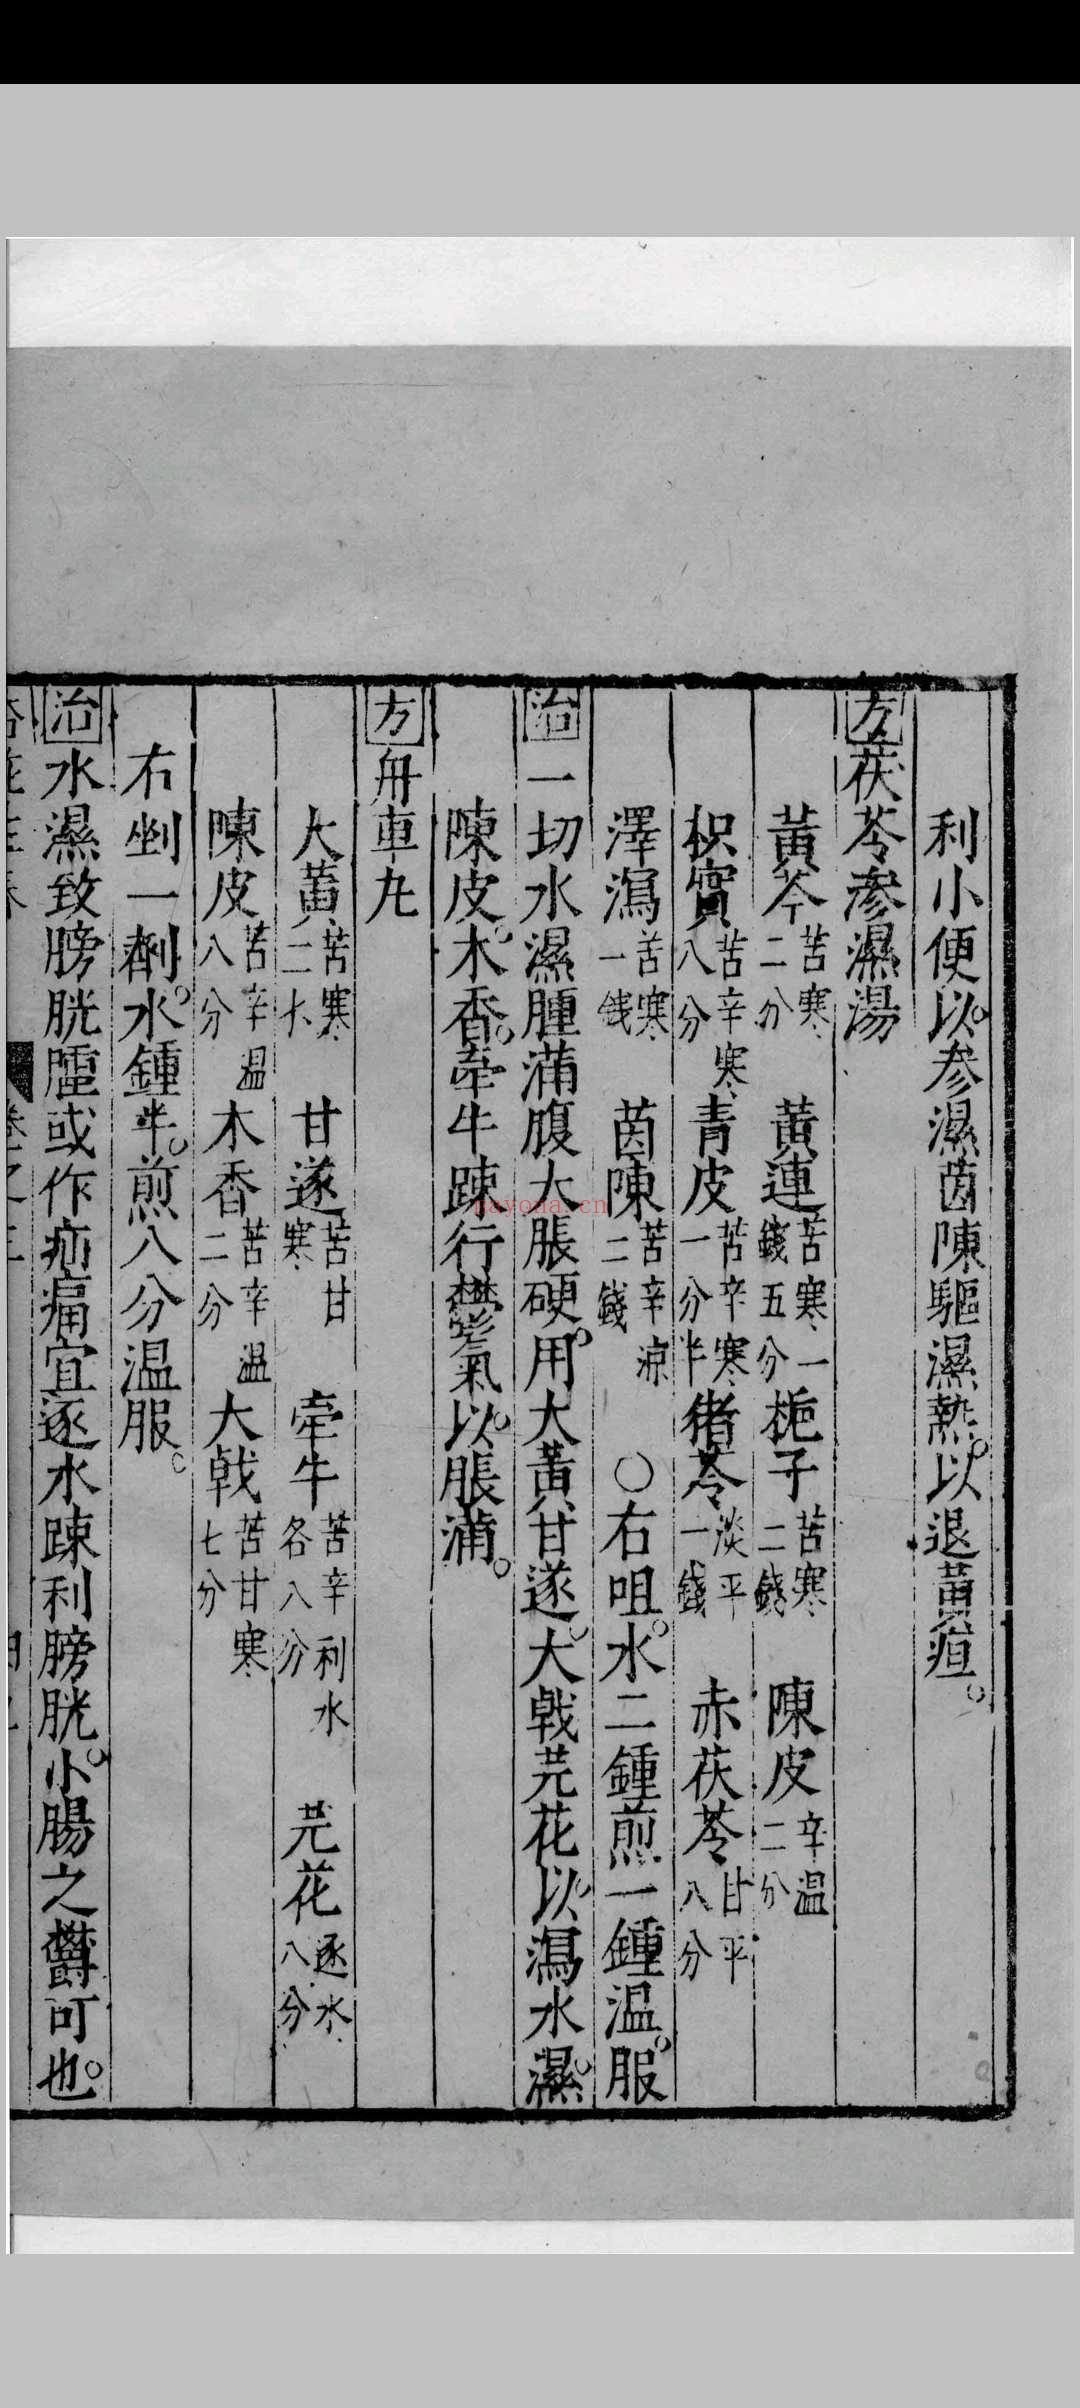 利小便以參濕茵陳驅濕熱以退黃疸
方茯苓滲濕湯
黃芩苦寒二分 黃連苦寒一錢五分 梔子苦寒二錢 陳皮辛温二分
枳實苦辛寒八分 青皮苦辛寒一分半 猪苓淡平一錢 赤茯苓甘平八分
澤瀉苦寒一錢 茵陳苦辛涼二錢 ○右咀水二鍾煎一鍾温服
治一切水濕腫滿腹大脹硬用大黃甘遂大戟芫花以瀉水濕
陳皮木香牽牛踈行鬱氣以脹滿
方舟車丸
大黃苦寒二 甘遂苦甘寒 牽牛苦辛利水各八分 芫花逐水八分
陳皮苦辛温八分 木香苦辛温二分 大戟苦甘寒七分
右剉一劑水鍾半煎八分温服
治水濕致膀胱脽或作疝痛宜逐水踈利膀胱小腸之鬱可也
卷之三
nayona.cn